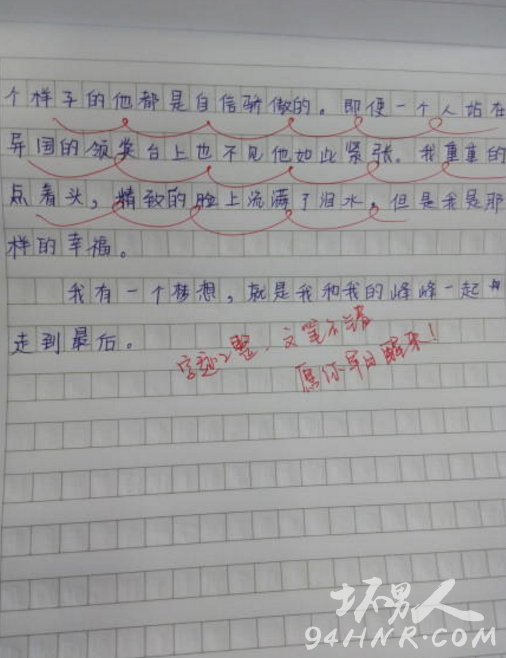 个样子的他都是自信骄傲的。即使一个人站在
异国的领奖台上也不见他如此紧张。我重重的
点着头，精致的脸上流满了泪水，但是我是那
样的幸福。
我有一个梦想，就是我和我的峰峰一起
走到最后。
字迹工整，文笔不错
愿你早日醒来！
坏男人
94HNR.COM